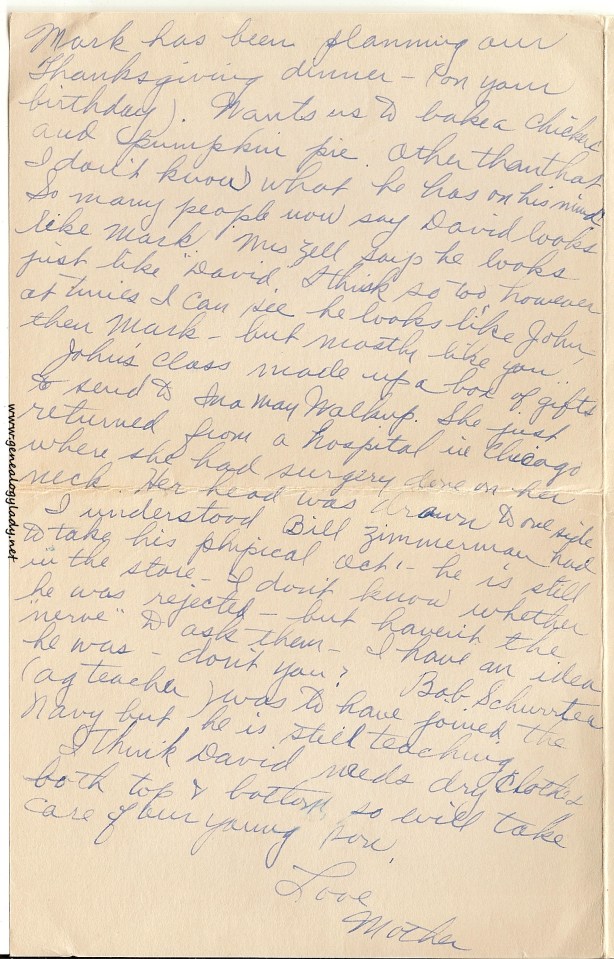 Mark has been planning our
Thanksgiving dinner – (on your
birthday). Wants us to bake a chicken
and pumpkin pie. Other than that
I don't know what he has on his mind.
So many people now say David looks
like Mark. Mrs Zell says he looks
just like "David." I think so too, however
at times I can see he looks like John,
then Mark – but mostly like you.
John's class made up a box of gifts
to send to Ina May Walkup. She just
returned from a hospital in Chicago
where she had surgery done on her
neck. Her head was drawn to one side
I understood Bill Zimmerman had
to take his physical Oct 1 – he is still
in the store – I don't know whether
he was rejected – but haven't the
"nerve" to ask them – I have an idea
he was – don't you? Bob
(ag teacher) was to have joined the
Navy but he is still teaching.
I think David needs dry clothes
both top & bottom, so will take
care of our young son.
Love
Mother
www.genealogylady.net